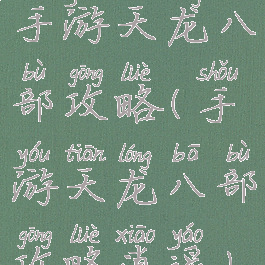 手游天龙八
bù gōng lüè shǒu
部攻略(手
yóu tiān lóng bā bù
游天龙八部
gōng lüè xiāo yáo
攻略逍遥)